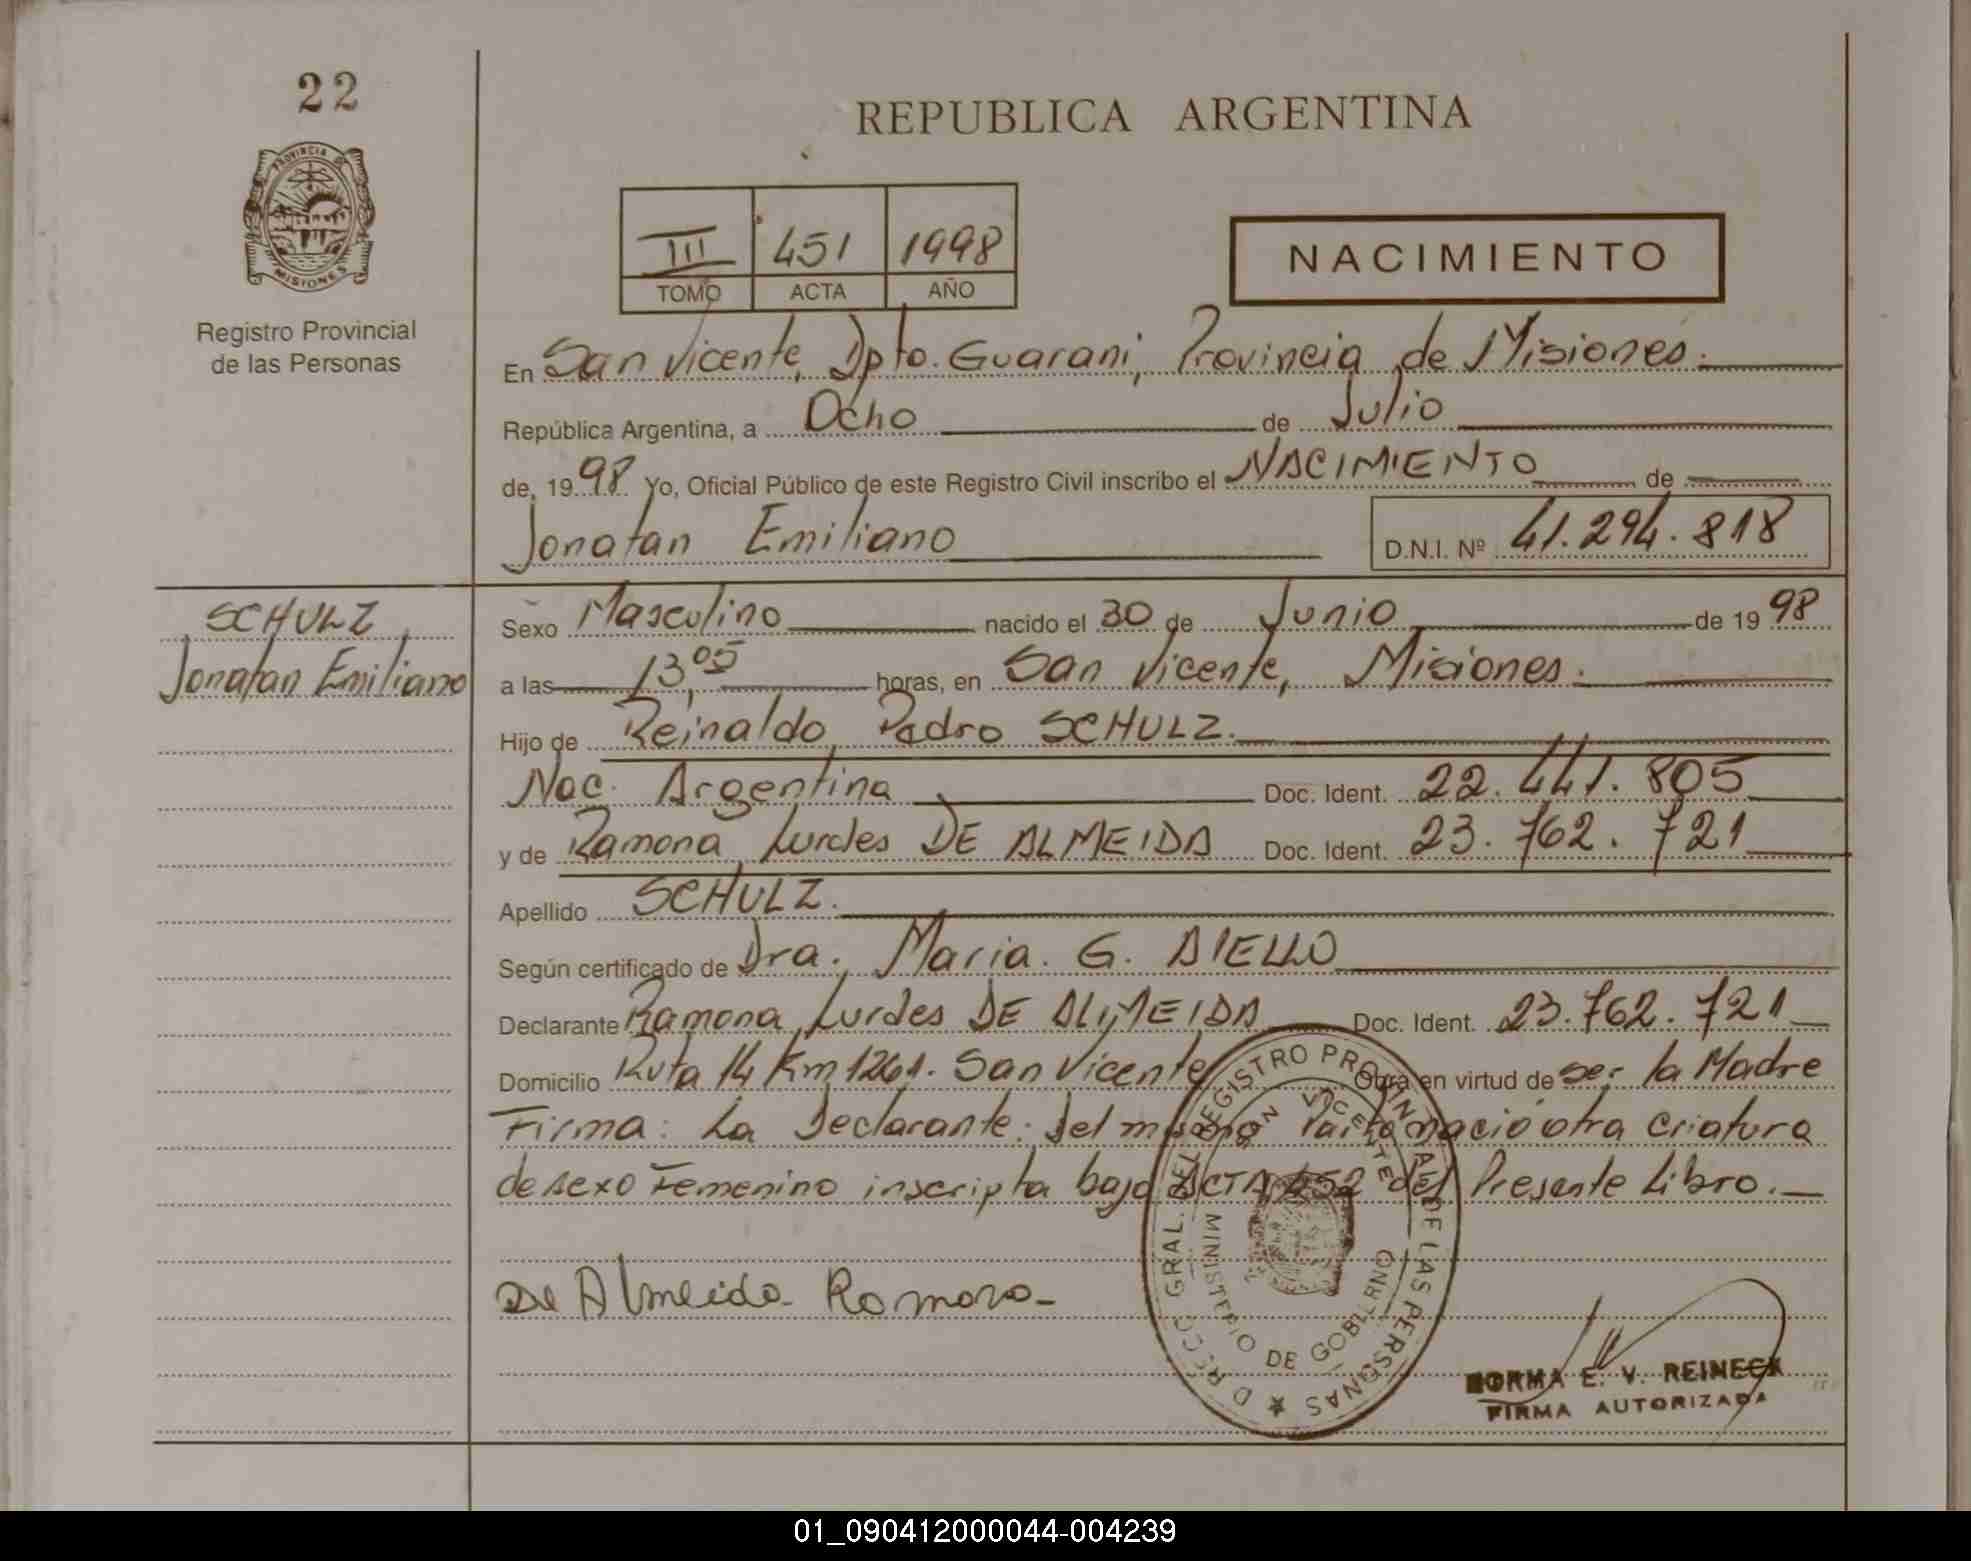 22
REPUBLICA ARGENTINA
PROVINCIA DE
MISIONES
Registro Provincial
de las Personas
III 451 1998
TOMO ACTA AÑO
NACIMIENTO
En San Vicente, Dpto. Guarani, Provincia de Misiones.
República Argentina, a Ocho de Julio
de 1998 Yo, Oficial Público de este Registro Civil inscribo el NACIMIENTO de
Jonatan Emiliano D.N.I. Nº 41.294.818
SCHULZ
Jonatan Emiliano
Sexo Masculino nacido el 30 de Junio de 1998
a las 13,05 horas, en San Vicente, Misiones.
Hijo de Reinaldo Pedro SCHULZ.
Nac. Argentina Doc. Ident. 22.441.805
y de Ramona Lurdes DE ALMEIDA Doc. Ident. 23.762.721
Apellido SCHULZ.
Según certificado de Dra. Maria. G. AIELLO
Declarante Ramona Lurdes DE ALMEIDA Doc. Ident. 23.762.721
Domicilio Ruta 14 Km 1261. San Vicente Obra en virtud de ser la Madre
Firma: La Declarante. Del mismo Parto nació otra criatura
de sexo Femenino inscripta bajo ACTA 452 del Presente Libro.
De Almeida Ramona
GRAL. DEL REGISTRO PROVINCIAL DE LAS PERSONAS
SAN VICENTE
MINISTERIO DE GOBIERNO
NORMA E. V. REINECK
FIRMA AUTORIZADA
01_090412000044-004239